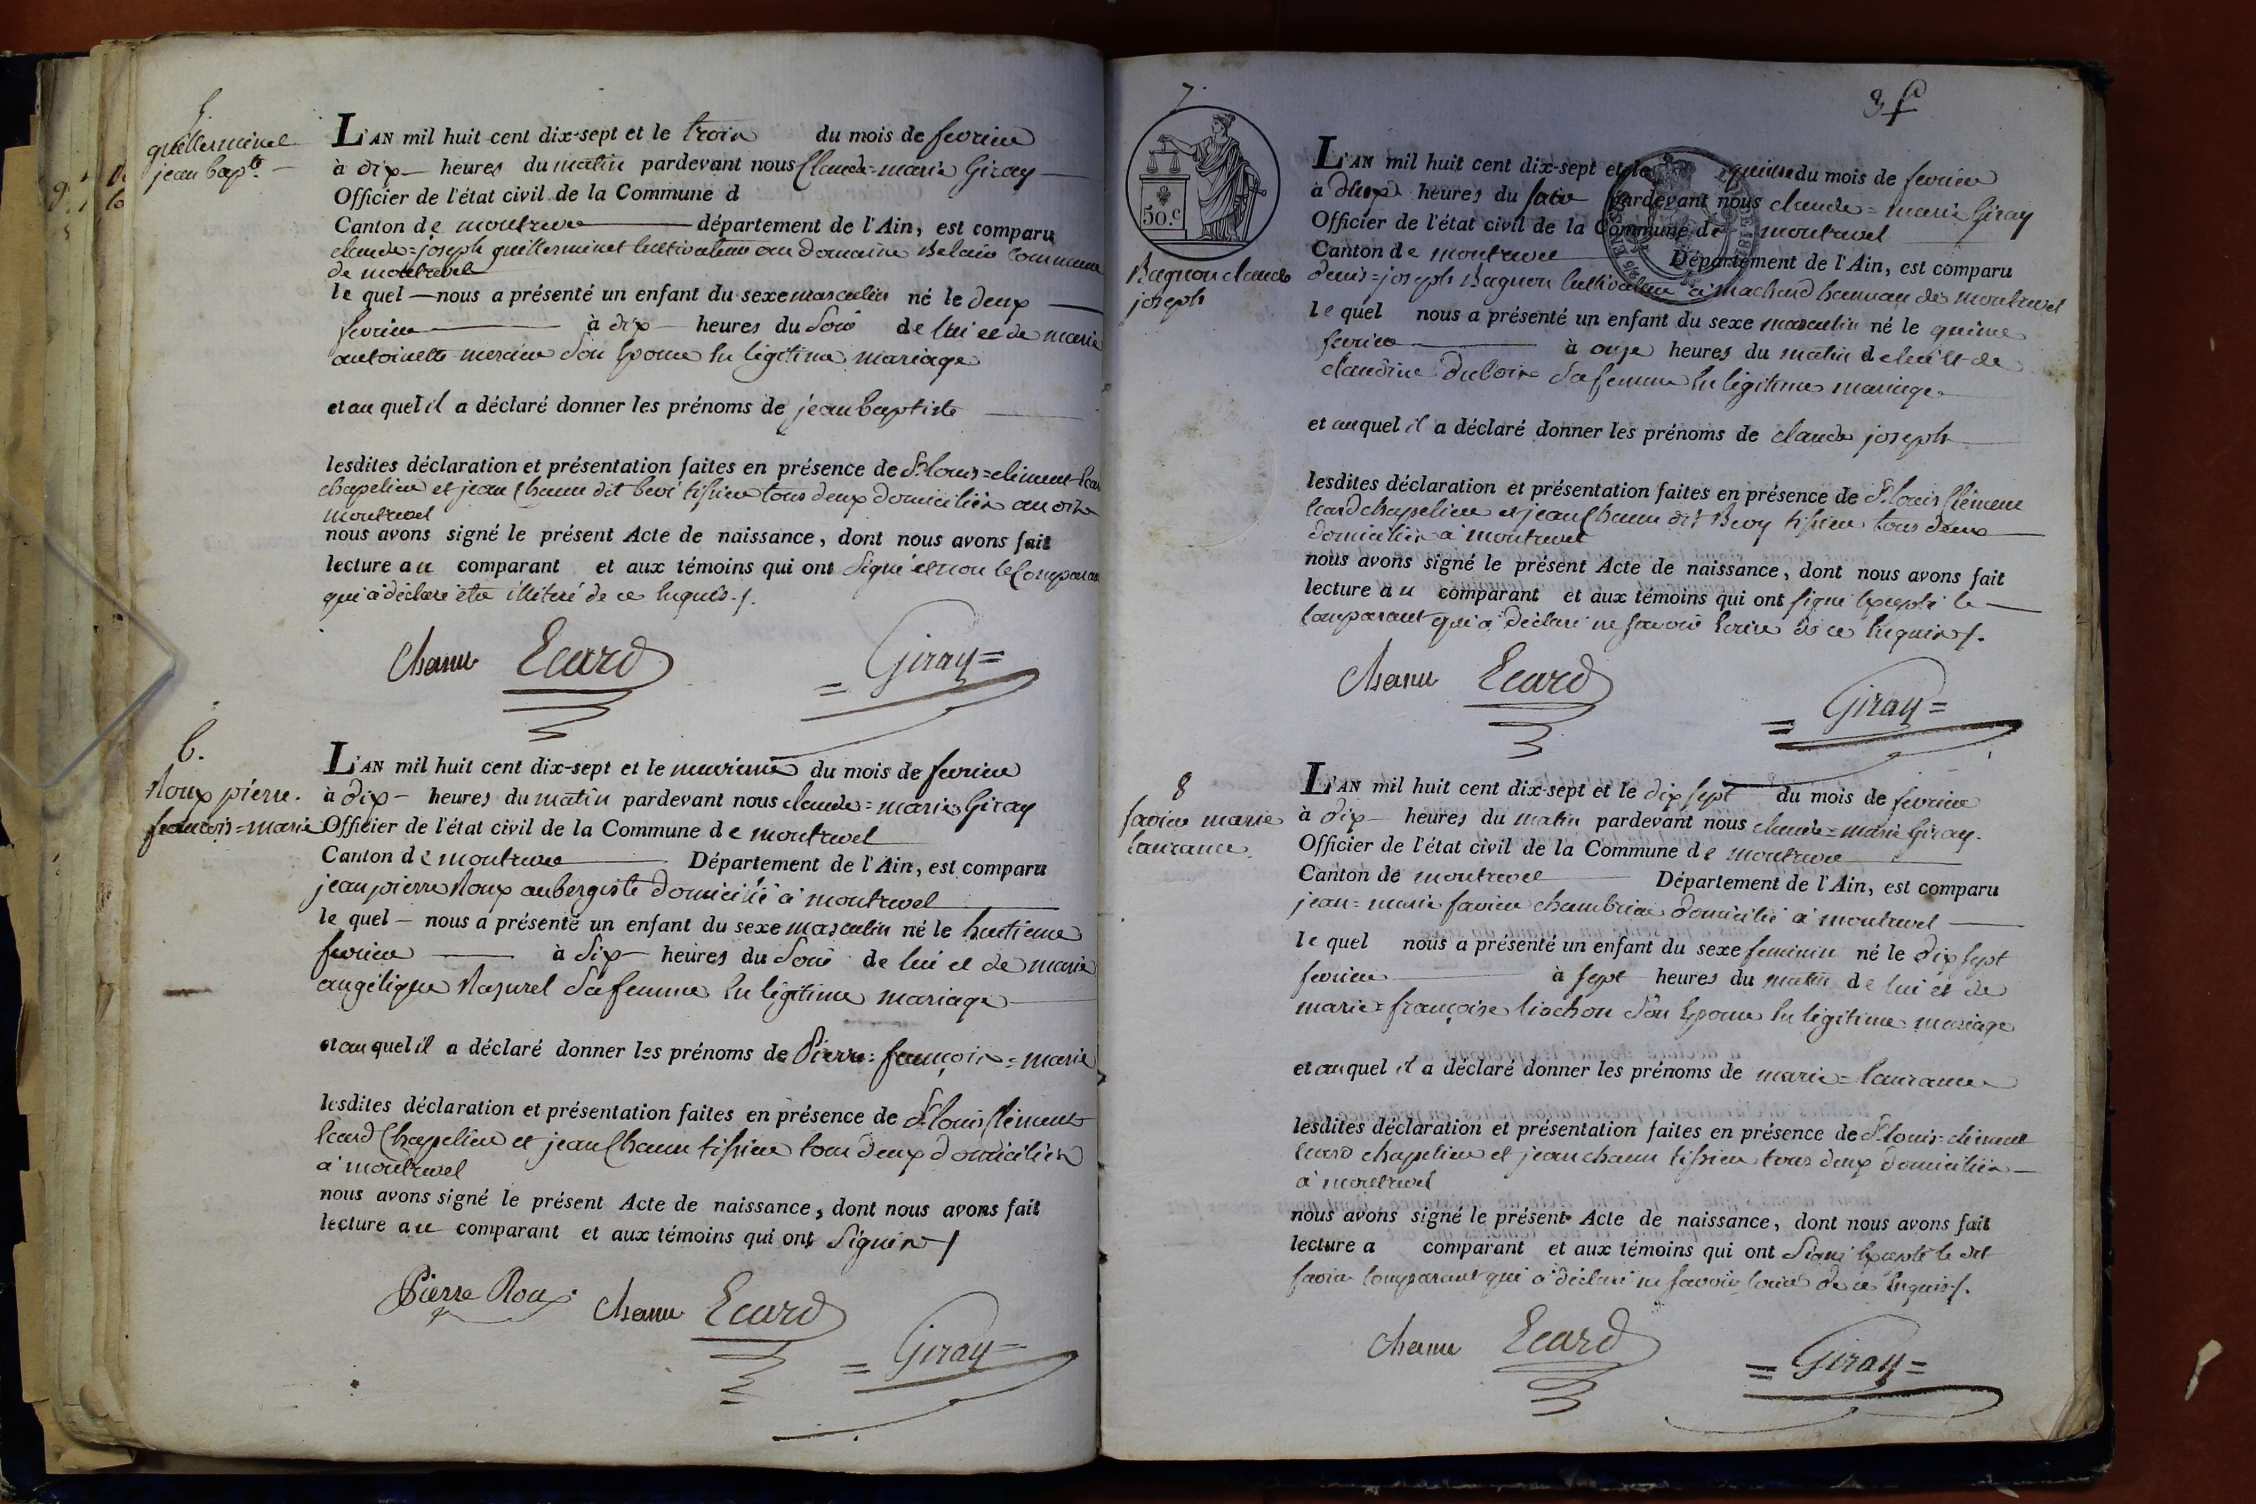 5
guillerminet
jean bap.te
L'AN mil huit cent dix-sept et le trois du mois de fevrier
à dix heures du matin pardevant nous Claude=marie Giray
Officier de l'état civil de la Commune d
Canton de montrevel département de l'Ain, est comparu
claude=joseph guillerminet Cultivateur au domaine Belair Commune
de montrevel
le quel nous a présenté un enfant du sexe masculin né le deux
fevrier à dix heures du Soir de lui et de marie
antoinette mercier Son Epouse En légitime mariage
et au quel il a déclaré donner les prénoms de jean baptiste
lesdites déclaration et présentation faites en présence de St. louis=clément Ecard
chapelier et jean Chanu dit tissier tous deux domiciliés au dit
montrevel
nous avons signé le présent Acte de naissance, dont nous avons fait
lecture au comparant et aux témoins qui ont Signé et non le Comparant
qui a déclaré être illiteré de ce Enquis./.
Chanu Ecard Giray
6.
Roux pierre
françois=marie
L'AN mil huit cent dix-sept et le neuvieme du mois de fevrier
à dix heures du matin pardevant nous claude=marie Giray
Officier de l'état civil de la Commune de montrevel
Canton de montrevel Département de l'Ain, est comparu
jean pierre Roux aubergiste domicilié à montrevel
le quel nous a présenté un enfant du sexe masculin né le huitieme
fevrier à Six heures du Soir de lui et de marie
angélique Sa femme En légitime mariage
et au quel il a déclaré donner les prénoms de Pierre=françois=marie
lesdites déclaration et présentation faites en présence de St. louis Clément
Ecard Chapelier et jean Chanu tissier tous deux domiciliés
à montrevel
nous avons signé le présent Acte de naissance, dont nous avons fait
lecture au comparant et aux témoins qui ont Signés /
Pierre Roux Chanu Ecard Giray
7.
3
50.c
Bagnon claude
joseph
L'AN mil huit cent dix-sept et le quinze du mois de fevrier
à deux heures du pardevant nous claude=marie Giray
Officier de l'état civil de la Commune de montrevel
Canton de montrevel Département de l'Ain, est comparu
denis=joseph Bagnon Cultivateur à machard hameau de montrevel
le quel nous a présenté un enfant du sexe masculin né le quinze
fevrier à onze heures du matin de lui et de
claudine dubois Sa femme En légitime mariage
et au quel il a déclaré donner les prénoms de claude joseph
lesdites déclaration et présentation faites en présence de St. louis Clément
Ecard chapelier et jean Chanu dit tissier tous deux
domiciliés à montrevel
nous avons signé le présent Acte de naissance, dont nous avons fait
lecture au comparant et aux témoins qui ont signé Excepté le
Comparant qui a déclaré ne Savoir Ecrire de ce Enquis /.
Chanu Ecard Giray
8
favier marie
laurance
L'AN mil huit cent dix-sept et le dix sept du mois de fevrier
à dix heures du matin pardevant nous claude=marie Giray.
Officier de l'état civil de la Commune de montrevel
Canton de montrevel Département de l'Ain, est comparu
jean=marie favier domicilié à montrevel
le quel nous a présenté un enfant du sexe feminin né le dix sept
fevrier à sept heures du matin de lui et de
marie=françoise Son Epouse En légitime mariage
et au quel il a déclaré donner les prénoms de marie=laurance
lesdites déclaration et présentation faites en présence de St. louis=clément
Ecard chapelier et jean chanu tissier tous deux domiciliés
à montrevel
nous avons signé le présent Acte de naissance, dont nous avons fait
lecture a comparant et aux témoins qui ont Signé Excepté le dit
favier Comparant qui a déclaré ne Savoir Ecrire de ce Enquis /.
Chanu Ecard Giray